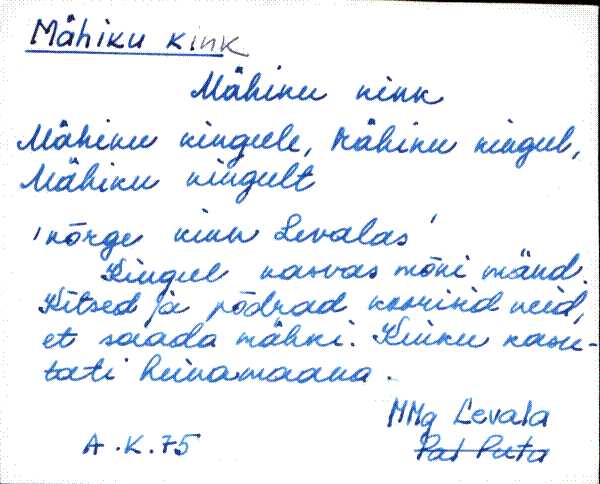 Mähiku kink
Mähiku kink
Mähiku kingule, Mähiku kingul,
Mähiku kingult
'kõrge kink Levalas'
Kingul kasvas mõni mänd.
Kitsed ja põdrad koorisid neid,
et saada mähki. Kinku kasu-
tati heinamaana.
MMg Levala
A.K. 75 Pal Puta